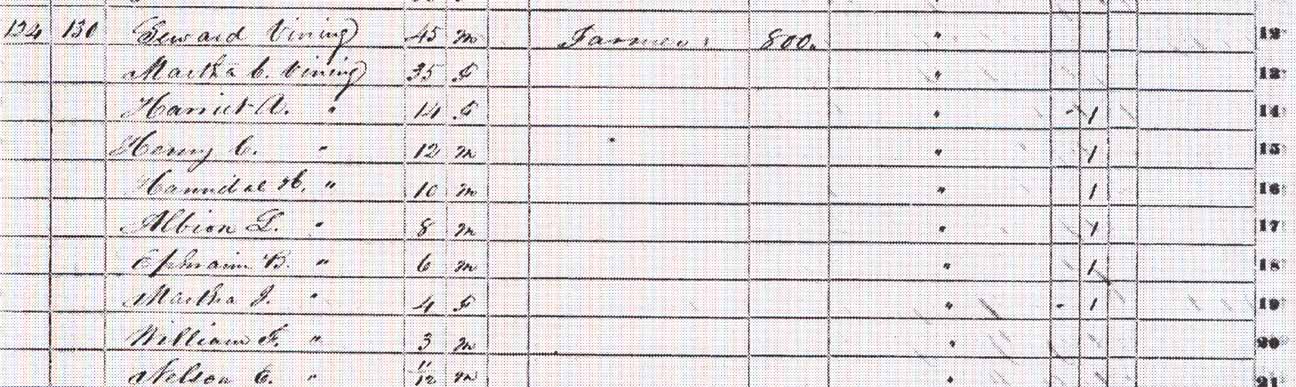 124 130 Seward Vining 45 m Farmer 800. " 12
Martha C. Vining 35 F " 13
Harriet A. " 14 F " 1 14
Henry C. " 12 m " 1 15
Hannibal H. " 10 m " 1 16
Albion L. " 8 m " 1 17
Ephraim B. " 6 m " 1 18
Martha J. " 4 F " 1 19
William F. " 3 m " 20
Nelson C. " 11/12 m " 21